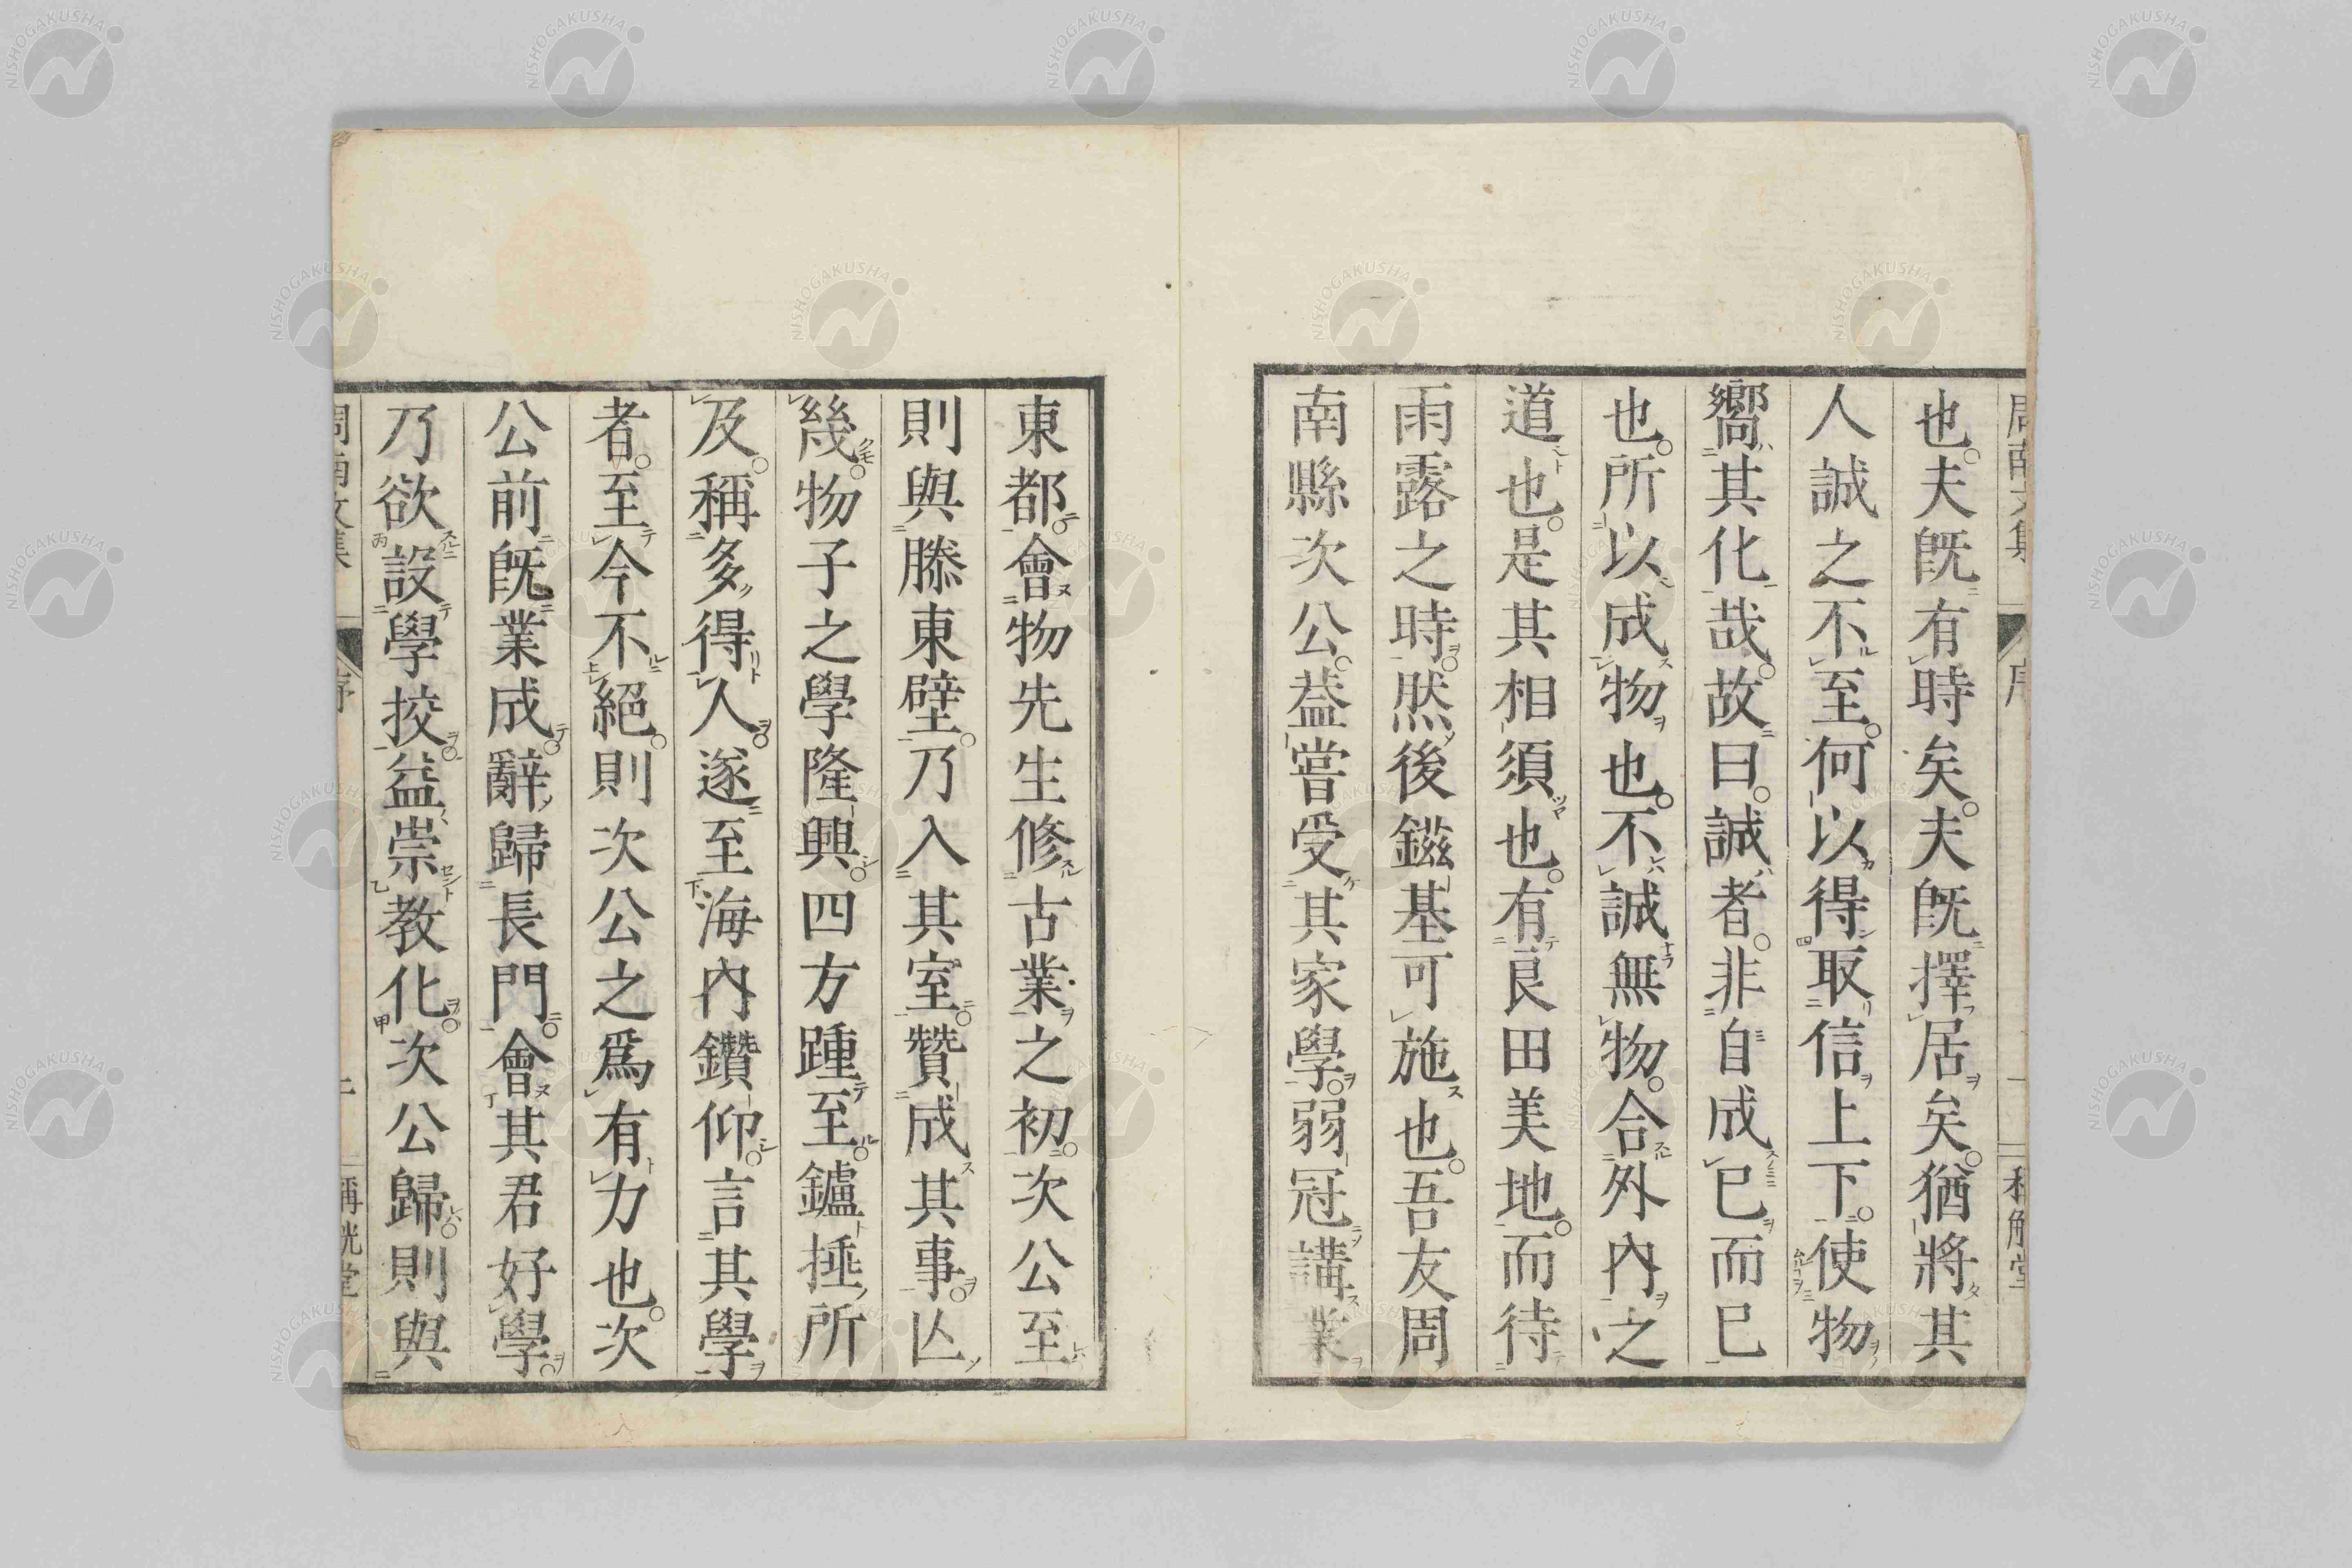 也夫旣有時矣夫旣擇居矣猶將其
人誠之不至何以得取信上下使物
嚮其化哉故曰誠者非自成已而已
也所以成物也不誠無物合外內之
道也是其相須也有良田美地而待
雨露之時然後鎡基可施也吾友周
南縣次公益嘗受其家學弱冠講業
東都會物先生修古業之初次公至
則與滕東壁乃入其室贊成其事亾
幾物子之學隆興四方踵至鑪捶所
及稱多得人遂至海內鑽仰言其學
者至今不絕則次公之爲有力也次
公前旣業成辭歸長門會其君好學
乃欲設學挍益崇教化次公歸則與
周南文集
序
稱觥堂
NISHOGAKUSHA